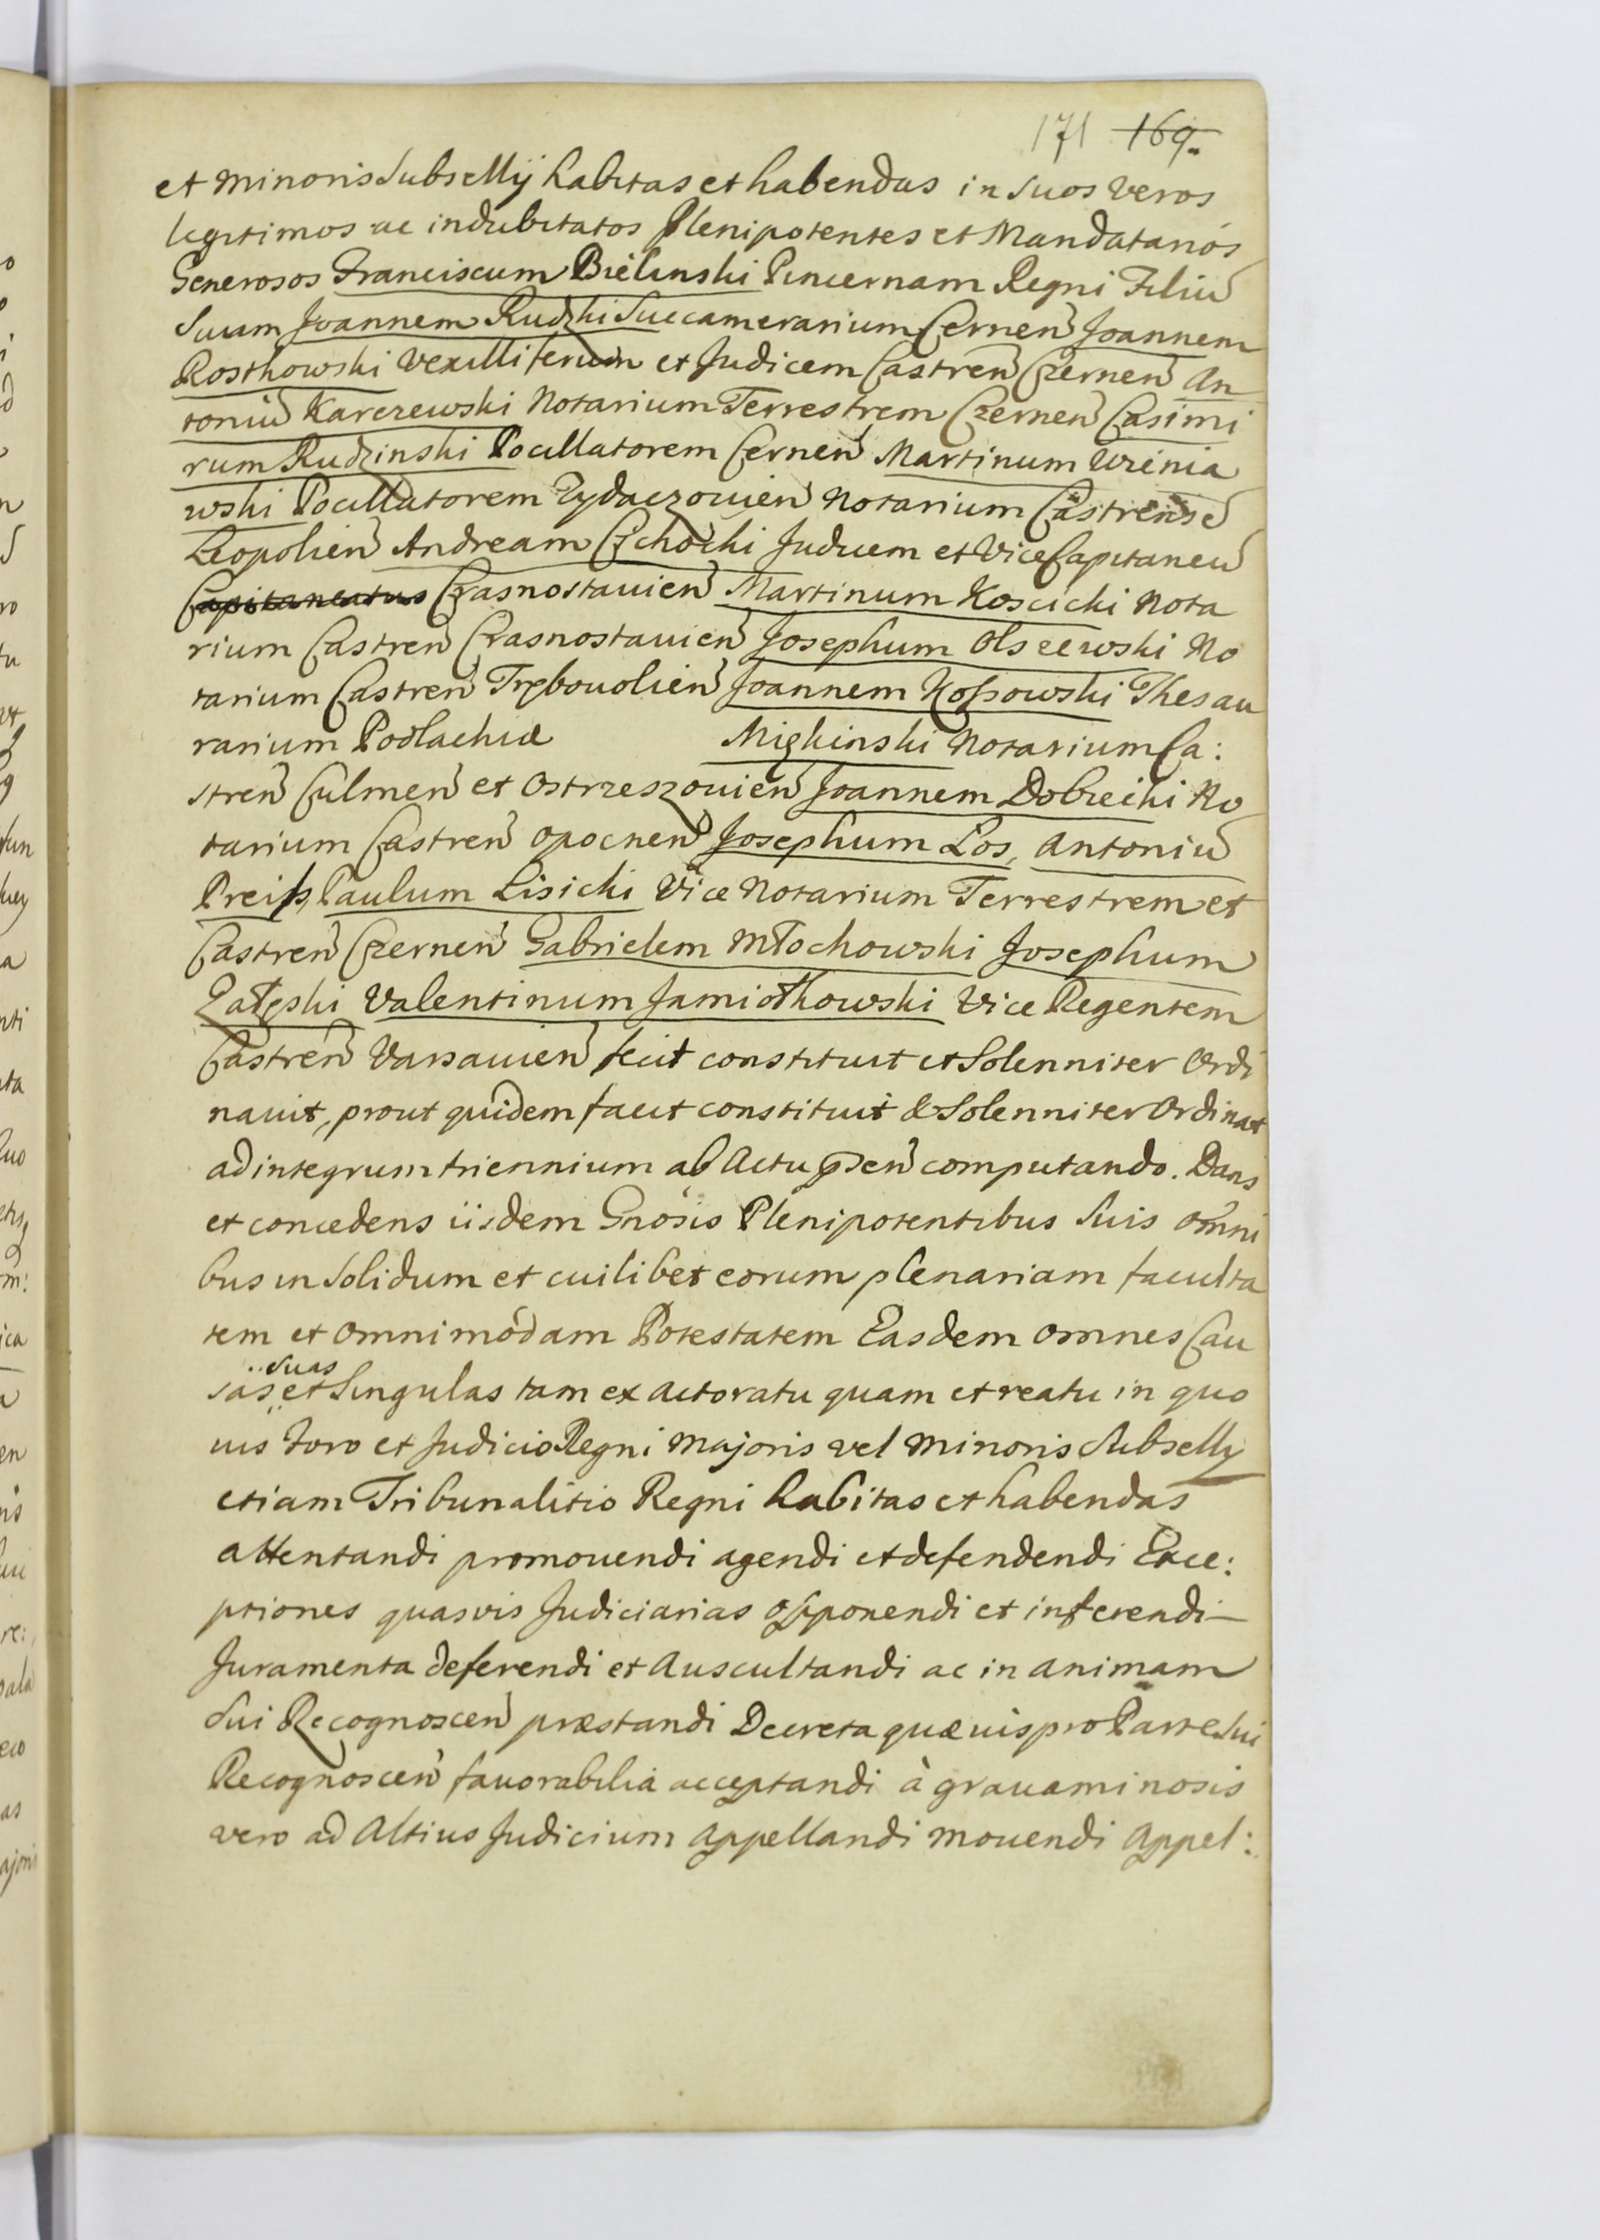 171 169.
et minoris Subsellÿ habitas et habendas in Suos veros
legitimos ac indubitatos Plenipotentes et Mandatarios
Generosos Franciscum Bielinski Pincernam Regni Filiu̅
Suum Joannem Rudzki Succamerarium Cernen̅ Joannem
Rostkowski Vexilliferum et Judicem Castren̅ Czernen̅ An
toniu̅ Karczewski Notarium Terrestrem Czernen̅ Casimi
rum Rudzinski Pocillatorem Cernen̅ Martinum Wienia
wski Pocillatorem Zydaczouien̅ Notarium Castrense̅
Leopolien̅ Andream Cichocki Judicem et ViceCapitaneu̅
Capitaneatus Crasnostauien̅ Martinum Koscicki Nota
rium Castren̅ Crasnostauien̅ Josephum Olszewski No
tarium Castren̅ Trębouolien̅ Joannem Kossowski Thesau
rarium Podlachiæ Migkinski Notarium Ca:
stren̅ Culmen̅ et Ostrzeszouien̅ Joannem Dobrecki No
tarium Castren̅ Opocnen̅ Josephum Los, Antoniu̅
Preiss, Paulum Lisicki Vice Notarium Terrestrem et
Castren̅ Czernen̅ Gabrielem Młochowski Josephum
Załęski Valentinum Jamiołkowski Vice Regentem
Castren̅ Varsauien̅ fecit constituit et Solenniter Ordi
nauit, prout quidem facit constituit & Solenniter Ordinat
ad integrum triennium ab Actu p̅sen̅ computando. Dans
et concedens iisdem Gnosis Plenipotentibus Suis omni
bus in Solidum et cuilibet eorum plenariam faculta
tem et omnimodam Potestatem Easdem omnes Cau
suas
sas et Singulas tam ex actoratu quam et reatu in quo
uis Foro et Judicio Regni Majoris vel Minoris Subselly
etiam Tribunalitio Regni habitas et habendas
attentandi promouendi agendi et defendendi Exce:
ptiones quasvis Judiciarias opponendi et inferendi
Juramenta deferendi et Auscultandi ac in animam
Sui Recognoscen̅ præstandi Decreta quæuis pro Parte Sui
Recognoscen̅ fauorabilia acceptandi à grauaminosis
vero ad Altius Judicium Appellandi mouendi Appel: